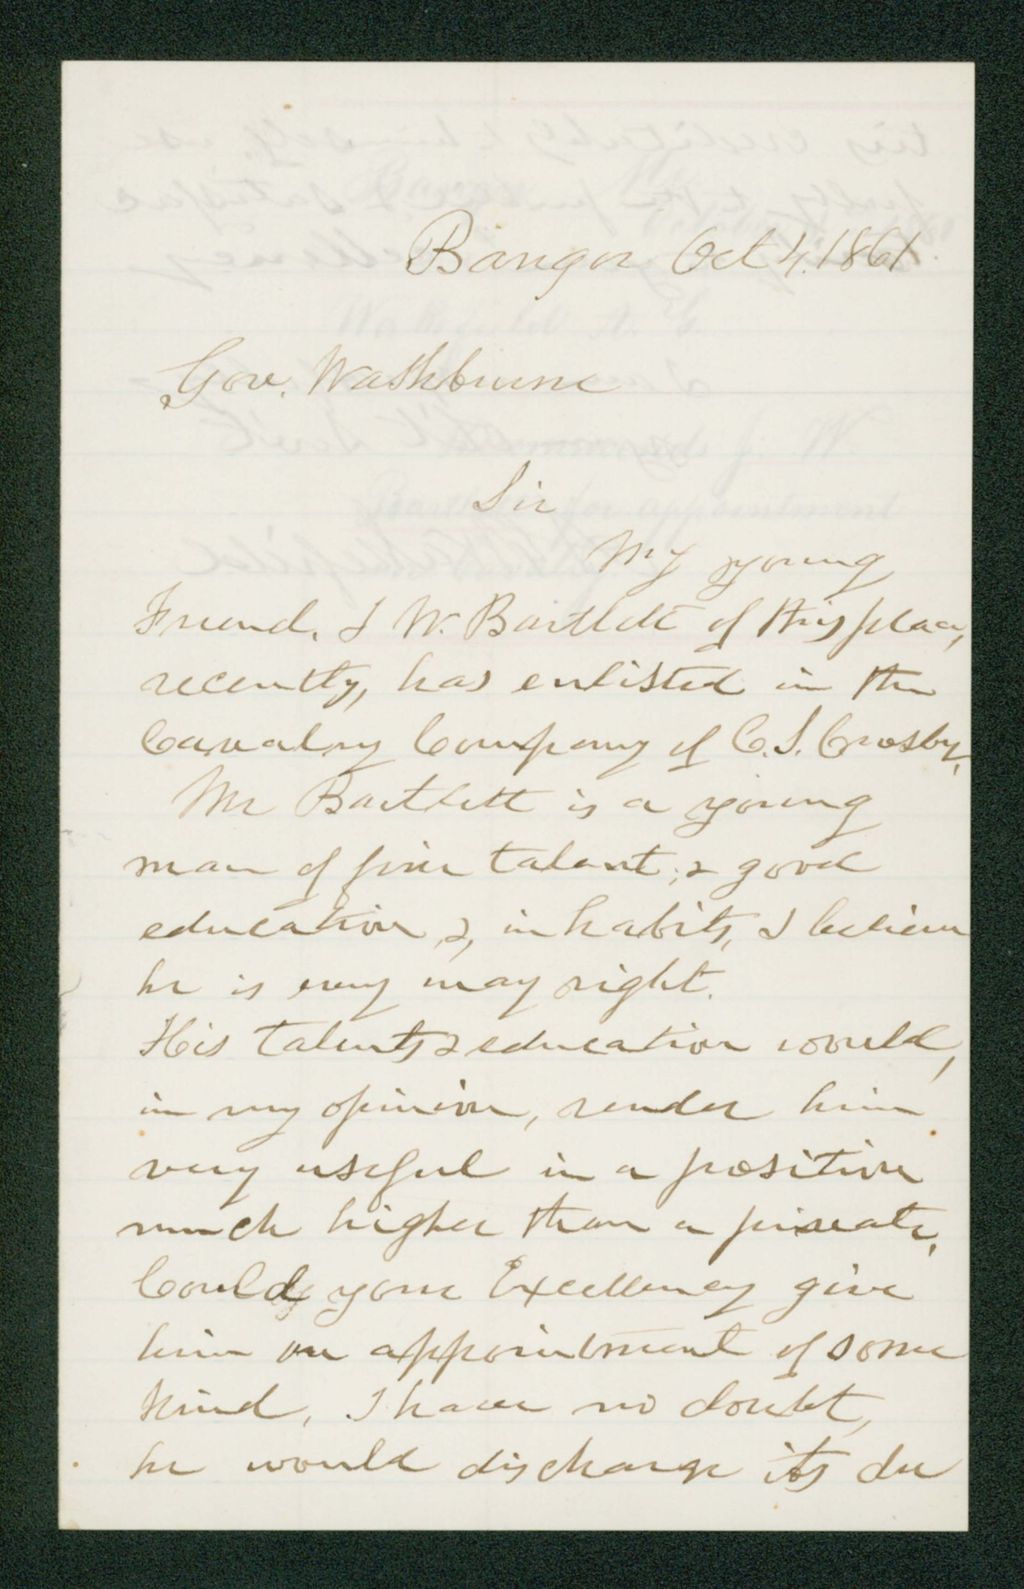 Bangor Oct 4, 1861.
Gov. Washburne
Sir
My young
Friend, J W. Bartlett of this place,
recently, has enlisted in the
Cavalry Company of C.S. Crosby.
Mr Bartlett is a young
man of fine talent, & good
education &, in habits, I believe
he is every way right.
His talents & education would,
in my opinion, render him
very useful in a position
much higher than a private.
Could your Excellency give
him an appointment of some
kind, I have no doubt,
he would discharge its du